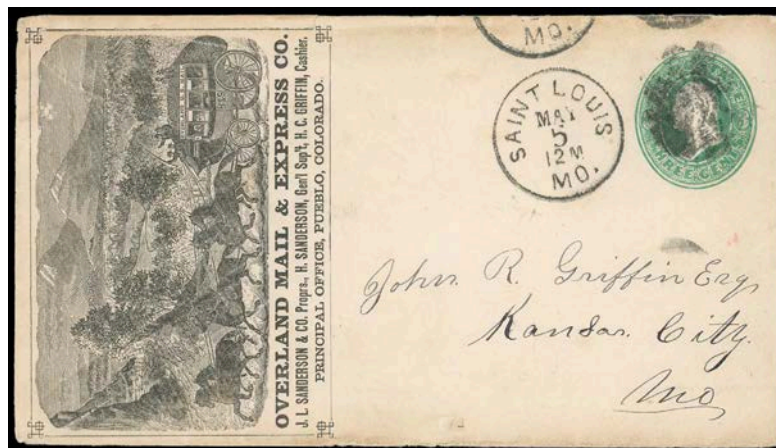 OVERLAND MAIL & EXPRESS CO.
J. L. SANDERSON & CO. Proprs., H. SANDERSON, Gen'l Sup't, H. C. GRIFFIN, Cashier.
PRINCIPAL OFFICE, PUEBLO, COLORADO.
MO.
SAINT LOUIS
MAY
5
12 M
MO.
THREE CENTS
John. R. Griffin Esq,
Kansas. City.
Mo